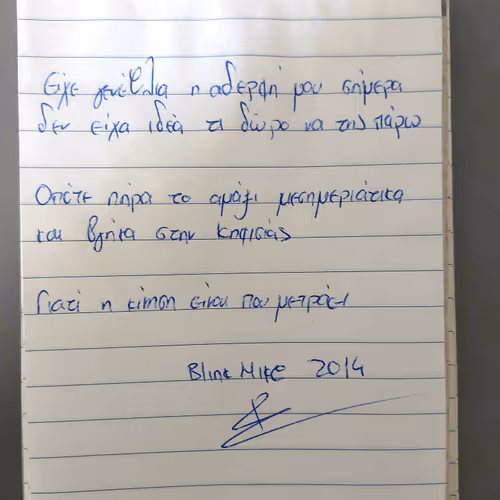 Είχε γενέθλια η αδερφή μου σήμερα
δεν είχα ιδέα τι δώρο να της πάρω
Οπότε πήρα το αμάξι μεσημεριάτικα
και βγήκα στην Κηφισίας
Γιατί η κίνηση είναι που μετράει
Blink Mike 2014